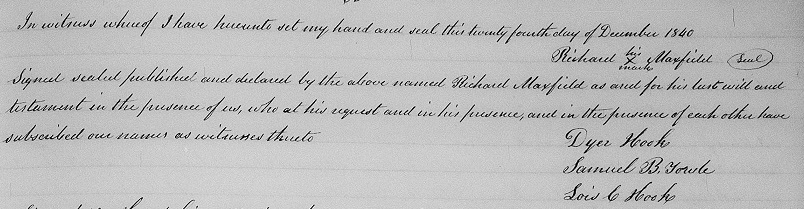 In witness whereof I have hereunto set my hand and seal this twenty fourth day of December 1840
Richard his X mark Maxfield Seal
Signed sealed published and declared by the above named Richard Maxfield as and for his last will and
testament in the presence of us, who at his request and in his presence, and in the presence of each other have
subscribed our names as witnesses thereto
Dyer Hook
Samuel B. Towle
Lois C Hook